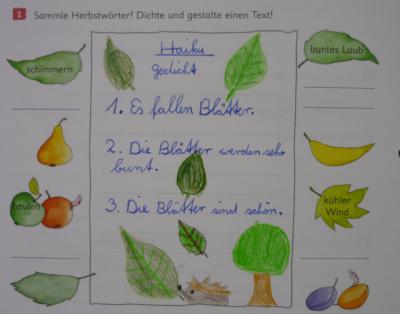 2 Sammle Herbstwörter! Dichte und gestalte einen Text!
Haiku
Gedicht
schimmern
buntes Laub
1. Es fallen Blätter.
2. Die Blätter werden sehr
bunt.
heulen
kühler
Wind
3. Die Blätter sind schön.